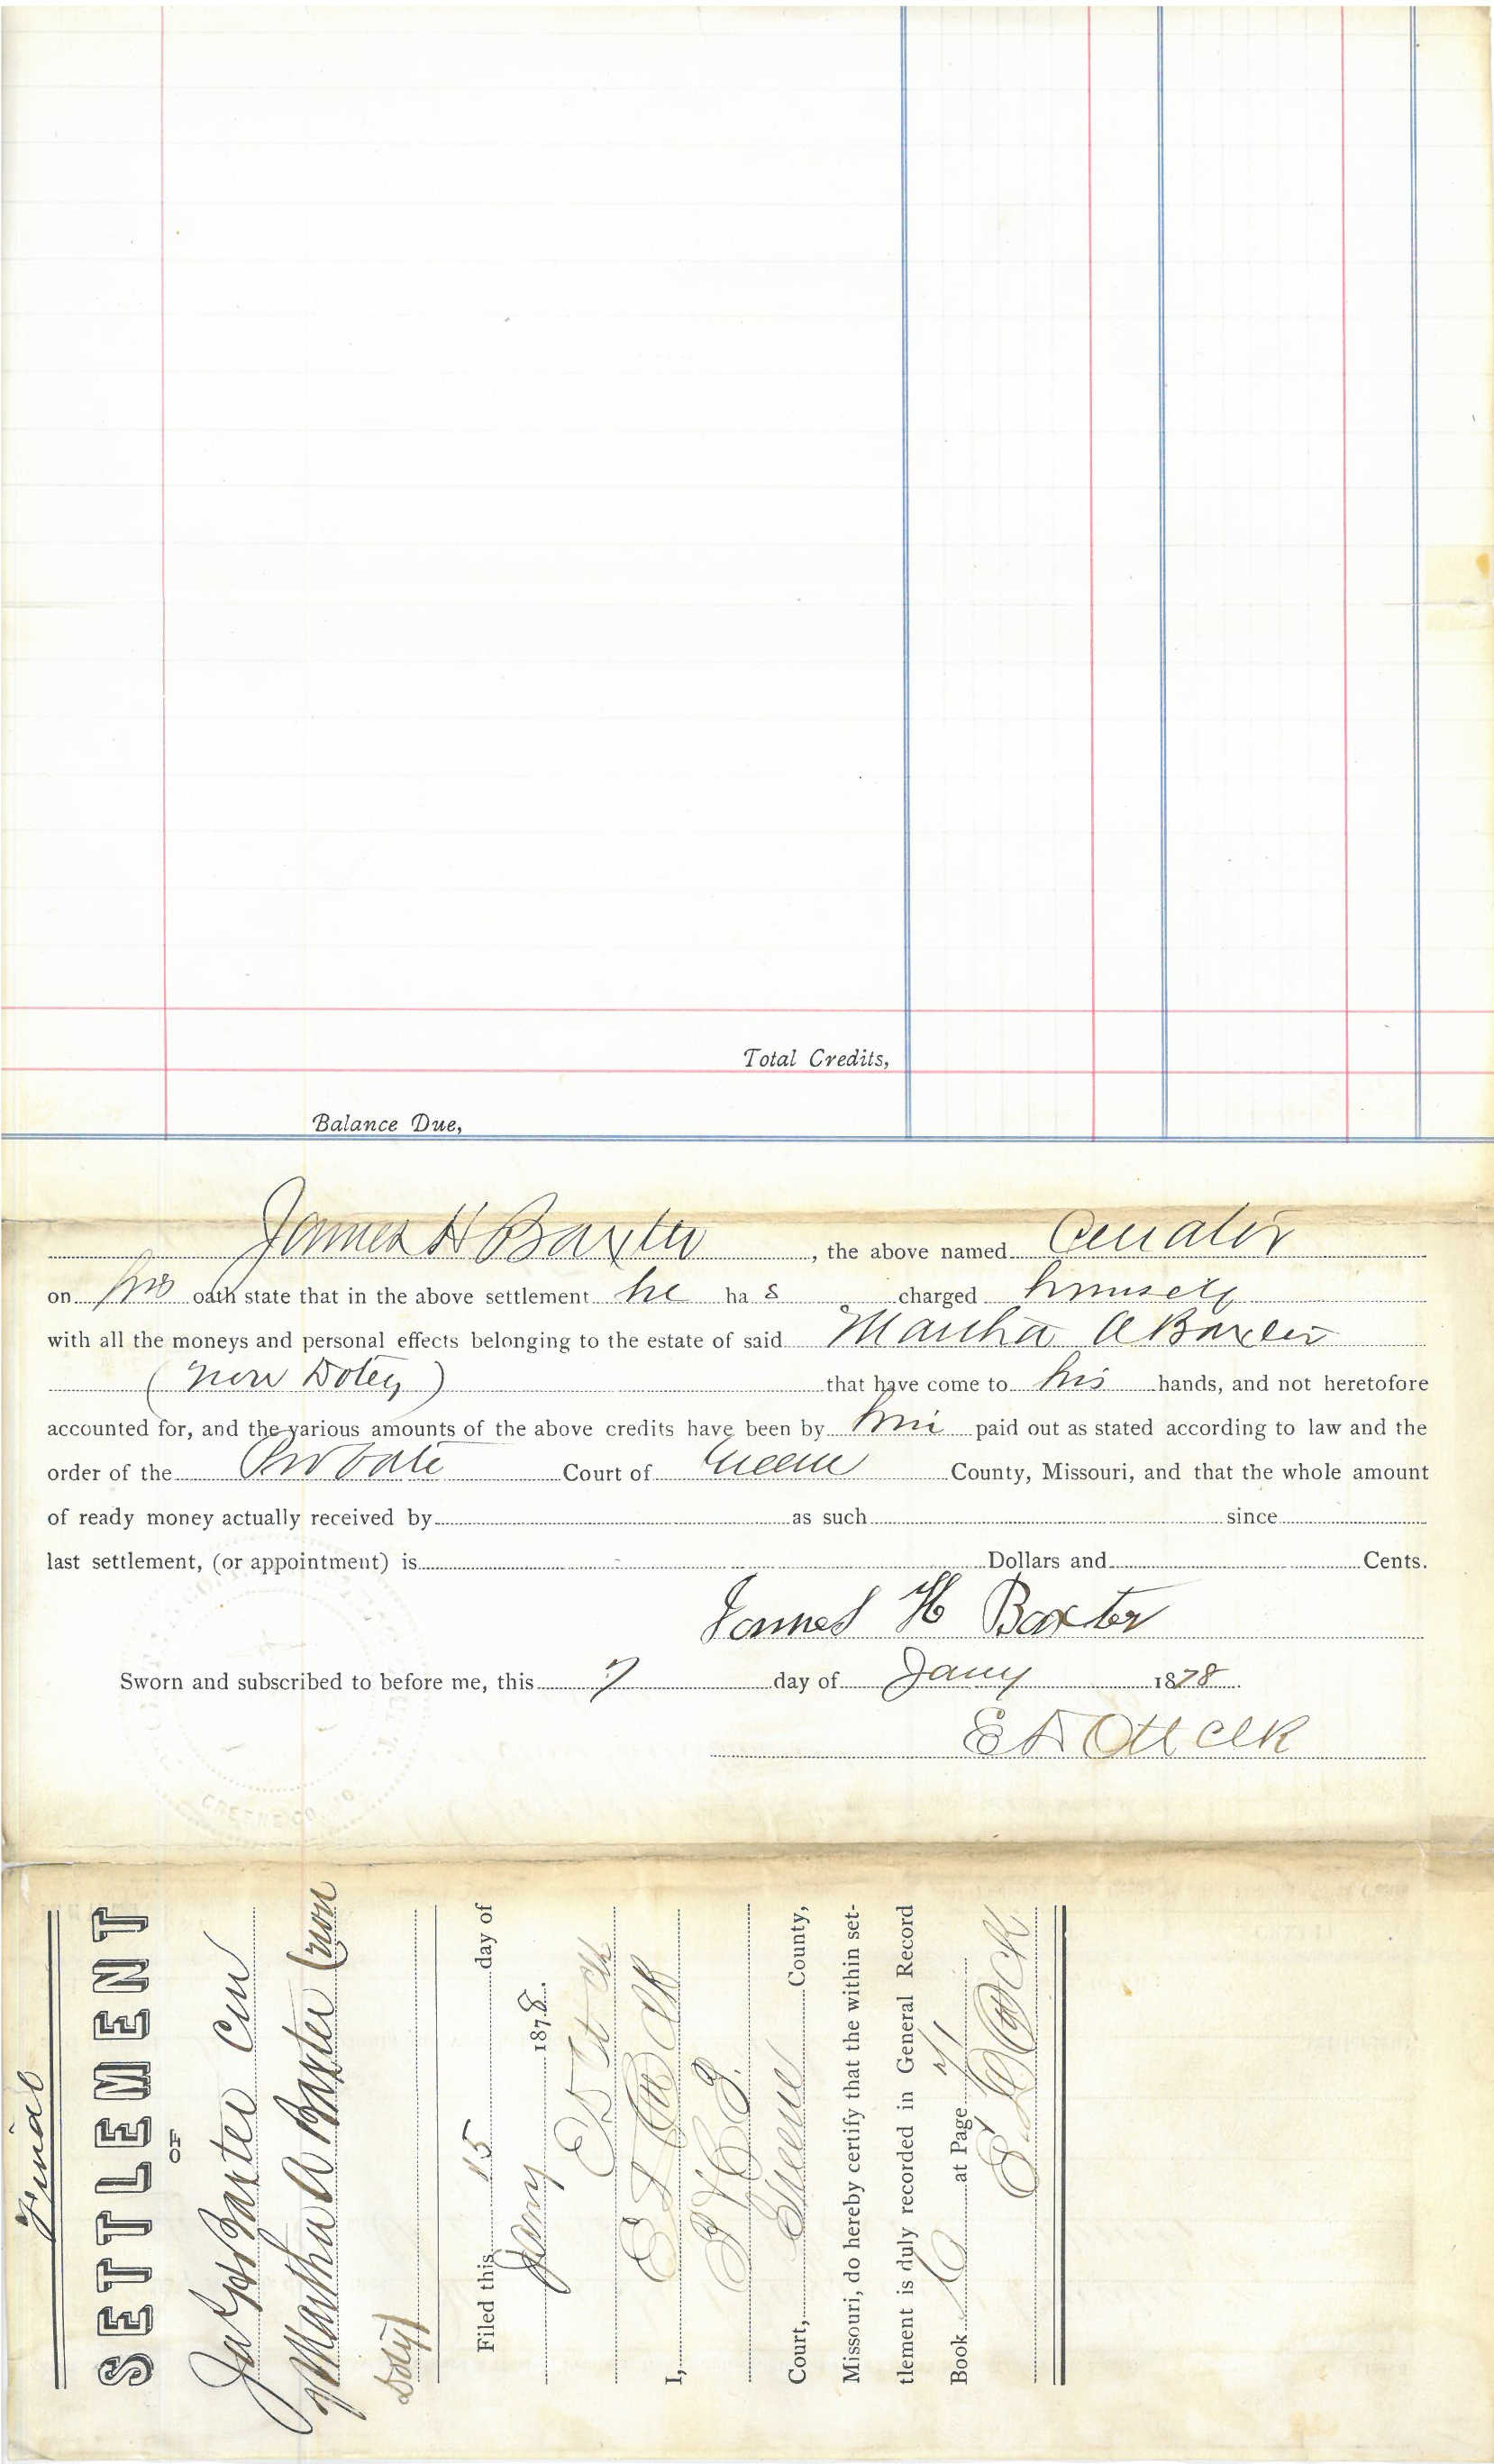 Total Credits,
Balance Due,
James H Baxter, the above named Curator
on his oath state that in the above settlement he ha s charged himself
with all the moneys and personal effects belonging to the estate of said Martha A Baxter
(now Dotey) that have come to his hands, and not heretofore
accounted for, and the various amounts of the above credits have been by him paid out as stated according to law and the
order of the Probate Court of Greene County, Missouri, and that the whole amount
of ready money actually received by as such since
last settlement, (or appointment) is Dollars and Cents.
James H Baxter
Sworn and subscribed to before me, this 7 day of Jany 1878
E D Ott clk
GREENE CO. MO.
Final
SETTLEMENT
OF
Jas H Baxter Cur
Martha A Baxter (now
Doty)
Filed this 15 day of
Jany 1878.
E D Ott clk
I, E D Ott clk
Court, Greene County,
Missouri, do hereby certify that the within set-
tlement is duly recorded in General Record
Book at Page
E D Ott clk